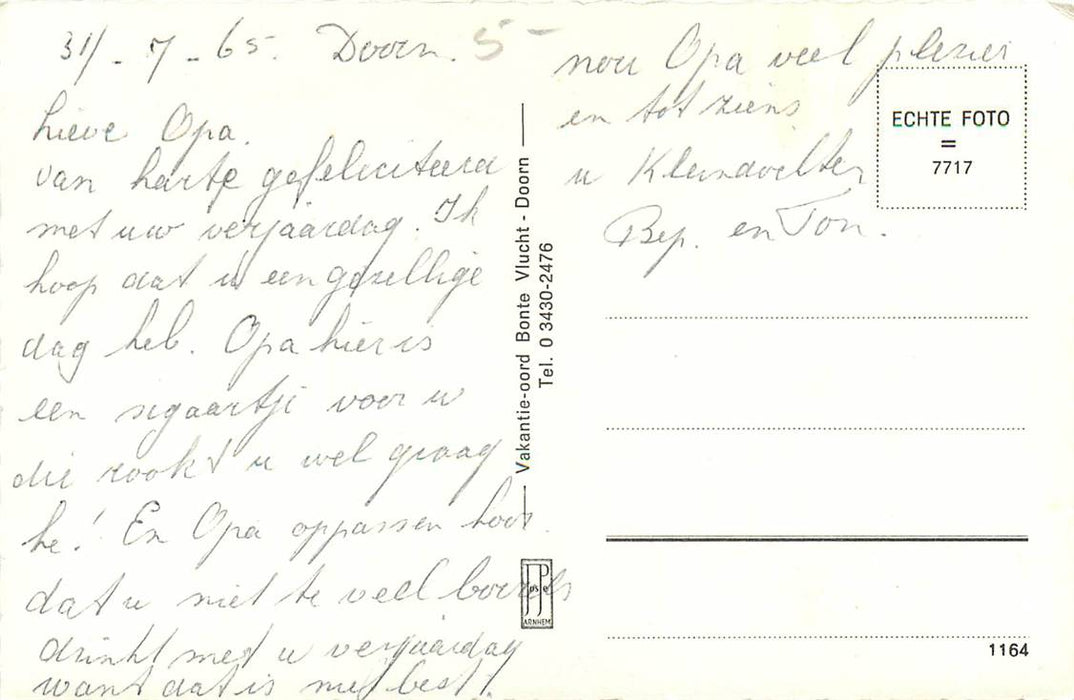 31/-7-65. Doorn. 5-
Lieve Opa.
van harte gefeliciteerd
met uw verjaardag. Ik
hoop dat u een gezellige
dag heb. Opa hier is
een sigaartje voor u
die rookt u wel graag
he! En Opa oppassen hoor.
dat u niet te veel borrels
drinkt met u verjaardag
want dat is niet best!
nou Opa veel plezier
en tot ziens
u Kleindochter
Bep. en Ton.
Vakantie-oord Bonte Vlucht - Doorn
Tel. 0 3430-2476
ECHTE FOTO
=
7717
ARNHEM
1164